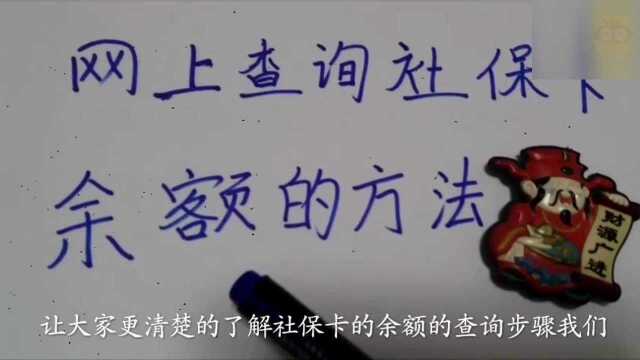 网上查询社保卡
余额的方法
財源广进
让大家更清楚的了解社保卡的余额的查询步骤我们